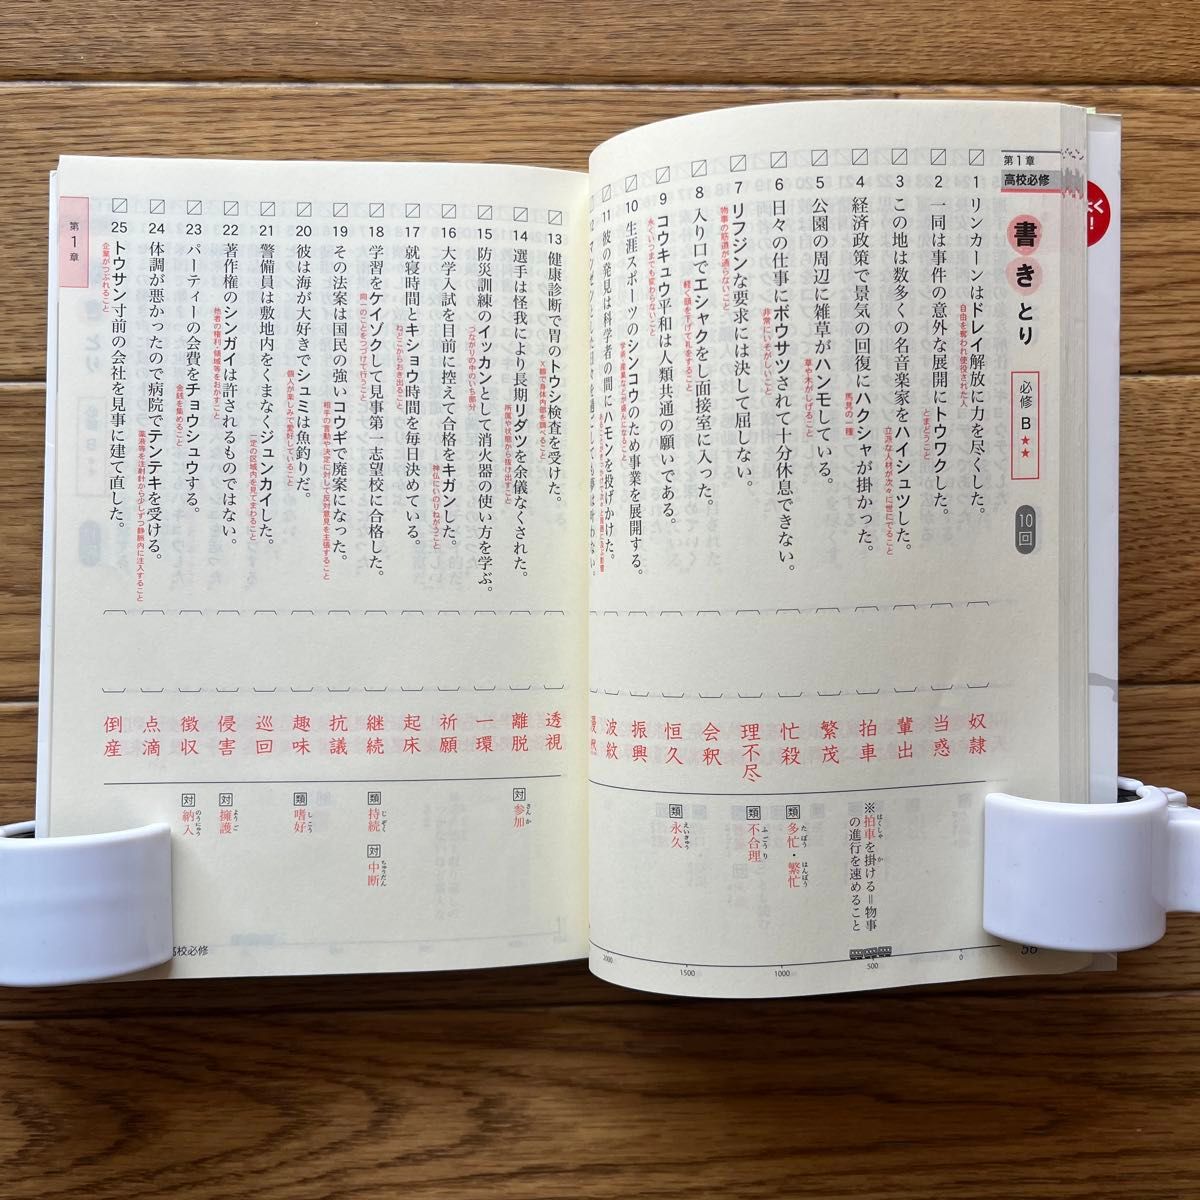 第1章
高校必修
書きとり
必修B★★
10回
1 リンカーンはドレイ解放に力を尽くした。
自由を奪われ使役された人
奴隷
2 一同は事件の意外な展開にトウワクした。
とまどうこと
当惑
3 この地は数多くの名音楽家をハイシュツした。
立派な人材が次々に世にでること
輩出
4 経済政策で景気の回復にハクシャが掛かった。
馬具の一種
拍車
※拍車を掛ける＝物事の進行を速めること
はくしゃ
か
5 公園の周辺に雑草がハンモしている。
草や木がしげること
繁茂
6 日々の仕事にボウサツされて十分休息できない。
非常にいそがしいこと
忙殺
類 多忙・繁忙
たぼう
はんぼう
7 リフジンな要求には決して屈しない。
物事の筋道が通らないこと
理不尽
類 不合理
ふごうり
8 入り口でエシャクをし面接室に入った。
軽く頭を下げて礼をすること
会釈
9 コウキュウ平和は人類共通の願いである。
永くいつまでも変わらないこと
恒久
類 永久
えいきゅう
10 生涯スポーツのシンコウのため事業を展開する。
学術・産業などが盛んになること
振興
11 彼の発見は科学者の間にハモンを投げかけた。
波紋
13 健康診断で胃のトウシ検査を受けた。
X線で身体内部を調べること
透視
14 選手は怪我により長期リダツを余儀なくされた。
所属や状態から抜け出すこと
離脱
対 参加
さんか
15 防災訓練のイッカンとして消火器の使い方を学ぶ。
つながりの中のいち部分
一環
16 大学入試を目前に控えて合格をキガンした。
神仏にいのりねがうこと
祈願
17 就寝時間とキショウ時間を毎日決めている。
ねどこからおき出ること
起床
18 学習をケイゾクして見事第一志望校に合格した。
同一のことをつづけて行うこと
継続
類 持続 対 中断
じぞく
ちゅうだん
19 その法案は国民の強いコウギで廃案になった。
相手の言動や決定に対して反対意見を主張すること
抗議
20 彼は海が大好きでシュミは魚釣りだ。
個人が楽しみで愛好していること
趣味
類 嗜好
しこう
21 警備員は敷地内をくまなくジュンカイした。
一定の区域内を見てまわること
巡回
22 著作権のシンガイは許されるものではない。
他者の権利・領域等をおかすこと
侵害
対 擁護
ようご
23 パーティーの会費をチョウシュウする。
金銭を集めること
徴収
対 納入
のうにゅう
24 体調が悪かったので病院でテンテキを受ける。
薬液等を注射針から少しずつ静脈内に注入すること
点滴
25 トウサン寸前の会社を見事に建て直した。
企業がつぶれること
倒産
第1章
高校必修
0
500
1000
1500
2000